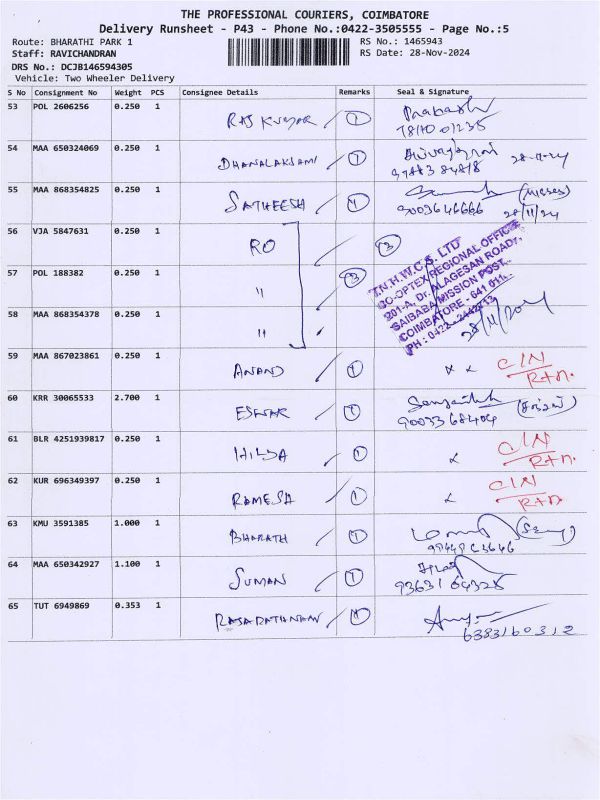 THE PROFESSIONAL COURIERS, COIMBATORE
Delivery Runsheet - P43 - Phone No.:0422-3505555 - Page No.:5
Route: BHARATHI PARK 1 RS No.: 1465943
Staff: RAVICHANDRAN RS Date: 28-Nov-2024
DRS No.: DCJB146594305
Vehicle: Two Wheeler Delivery
S No Consignment No Weight PCS Consignee Details Remarks Seal & Signature
53 POL 2606256 0.250 1 RAJ KUMAR 1 Prakash
54 MAA 650324069 0.250 1 DHANALAKSAMI 1 28-11-24
55 MAA 868354825 0.250 1 SATHEESH 9003646666 28/11/24
56 VJA 5847631 0.250 1 RO 3
57 POL 188382 0.250 1 " 3
58 MAA 868354378 0.250 1 "
T.N.H.W.C.S. LTD
CO-OPTEX REGIONAL OFFICE
201-A, Dr. ALAGESAN ROAD,
SAIBABA MISSION POST,
COIMBATORE - 641 011.
PH : 0422-2442113
28/11/2024
59 MAA 867023861 0.250 1 ANAND 1 x x C/N R+n.
60 KRR 30065533 2.700 1 ESWAR 1 9003368404
61 BLR 4251939817 0.250 1 HILDA 1 x C/N R+n.
62 KUR 696349397 0.250 1 RAMESH 1 x C/N R+n
63 KMU 3591385 1.000 1 BHARATH 1
64 MAA 650342927 1.100 1 SUMAN 1 9363164325
65 TUT 6949869 0.353 1 RAJARATHINAM 6383160312